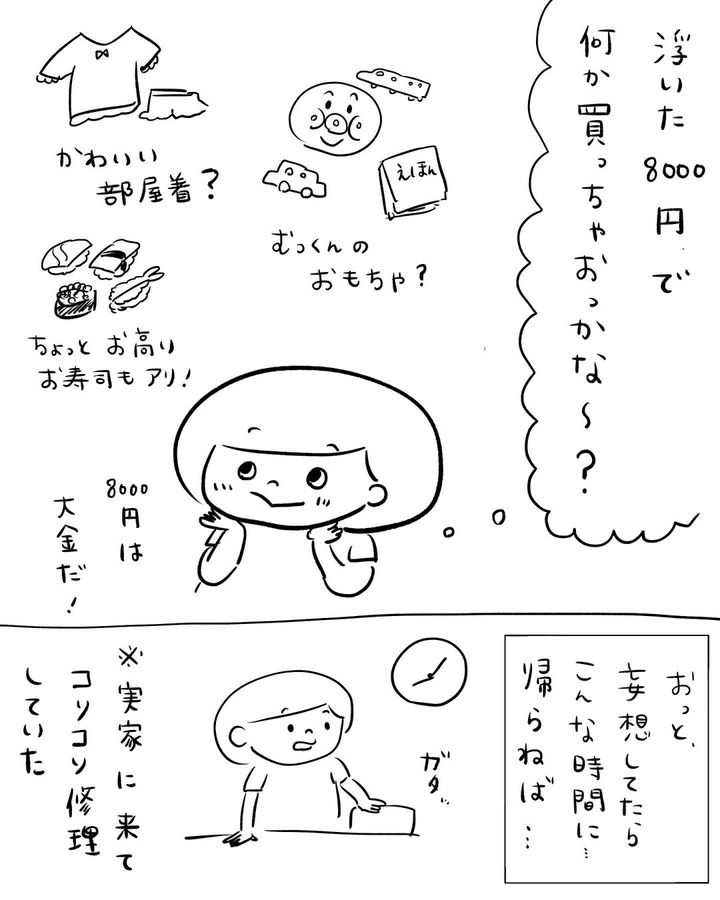 浮いた8000円で
何か買っちゃおっかな〜?
かわいい
部屋着?
えほん
むっくんの
おもちゃ?
ちょっとお高い
お寿司もアリ!
8000
円は
大金だ!
おっと、
妄想してたら
こんな時間に…
帰らねば…
ガタ…
※実家に来て
コソコソ修理
していた